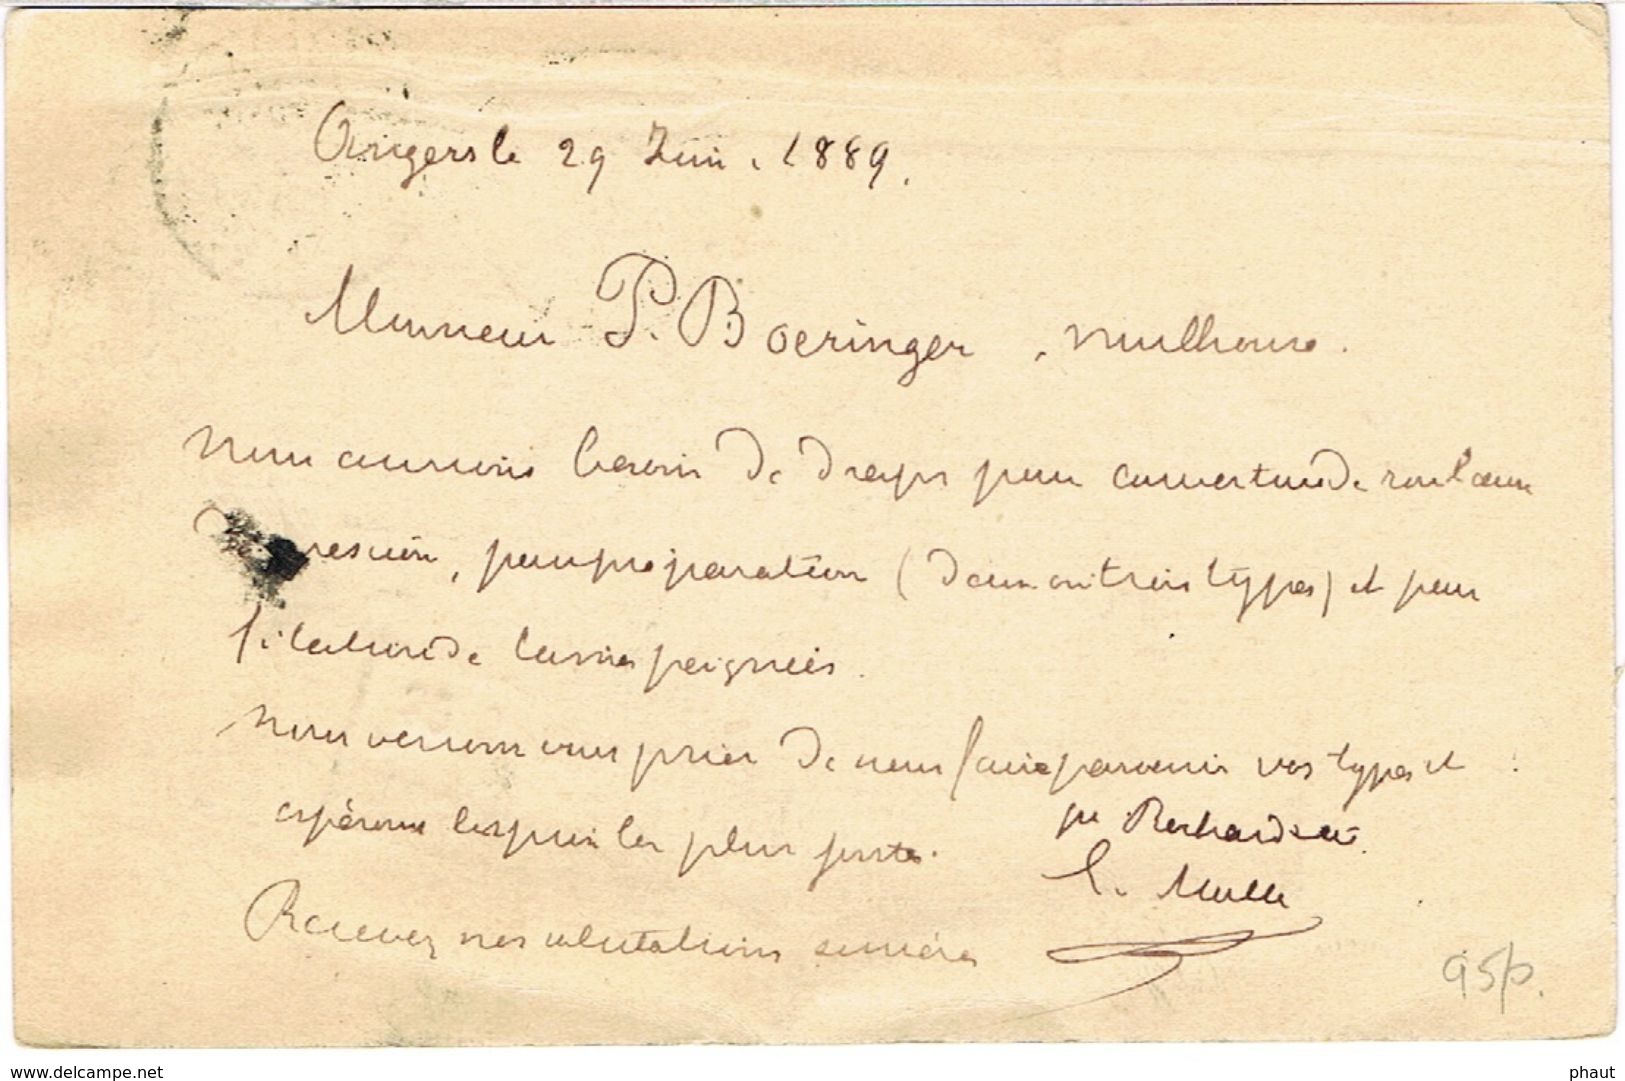 Angers le 29 Juin . 1889.
Monsieur P. Boeringer , Mulhouse .
Nous aurions besoin de draps pour couverture de rouleaux
pression, pour préparation (deux ou trois types) et pour
filature de laines peignées .
Nous venons vous prier de nous faire parvenir vos types et
espérons les prix les plus justes.
Recevez nos salutations sincères
pr
L. Muller
95p.
www.delcampe.net
phaut